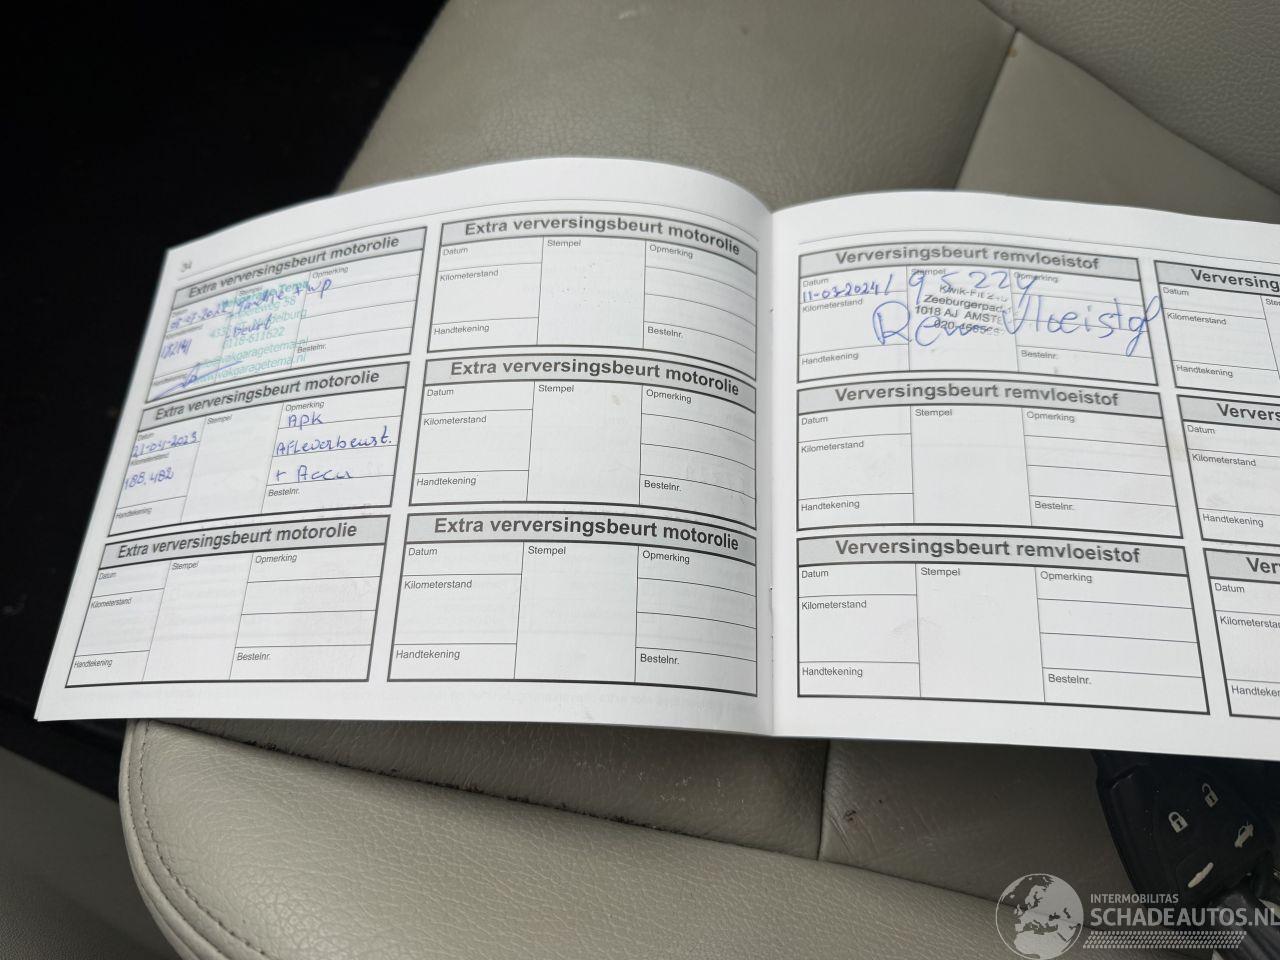 34
Extra verversingsbeurt motorolie
Datum
Stempel
Opmerking
+ wp
Kilometerstand
beurt
0118-611622
Handtekening
Bestelnr.
Extra verversingsbeurt motorolie
Datum
Stempel
Opmerking
APK
21-04-2023
Afleverbeurt.
Kilometerstand
188.482
+ Accu
Handtekening
Bestelnr.
Extra verversingsbeurt motorolie
Datum
Stempel
Opmerking
Kilometerstand
Handtekening
Bestelnr.
Extra verversingsbeurt motorolie
Datum
Stempel
Opmerking
Kilometerstand
Handtekening
Bestelnr.
Extra verversingsbeurt motorolie
Datum
Stempel
Opmerking
Kilometerstand
Handtekening
Bestelnr.
Extra verversingsbeurt motorolie
Datum
Stempel
Opmerking
Kilometerstand
Handtekening
Bestelnr.
Verversingsbeurt remvloeistof
Datum
Stempel
Opmerking
11-03-2024 / 95229
Kilometerstand
Zeeburgerpad
1018 AJ AMST
Remvloeistof
Handtekening
Bestelnr.
Verversingsbeurt remvloeistof
Datum
Stempel
Opmerking
Kilometerstand
Handtekening
Bestelnr.
Verversingsbeurt remvloeistof
Datum
Stempel
Opmerking
Kilometerstand
Handtekening
Bestelnr.
Verversings
Datum
Kilometerstand
Handtekening
Ververs
Datum
Kilometerstand
Handtekening
Ver
Datum
Kilometerstan
Handteke
INTERMOBILITAS
SCHADEAUTOS.NL